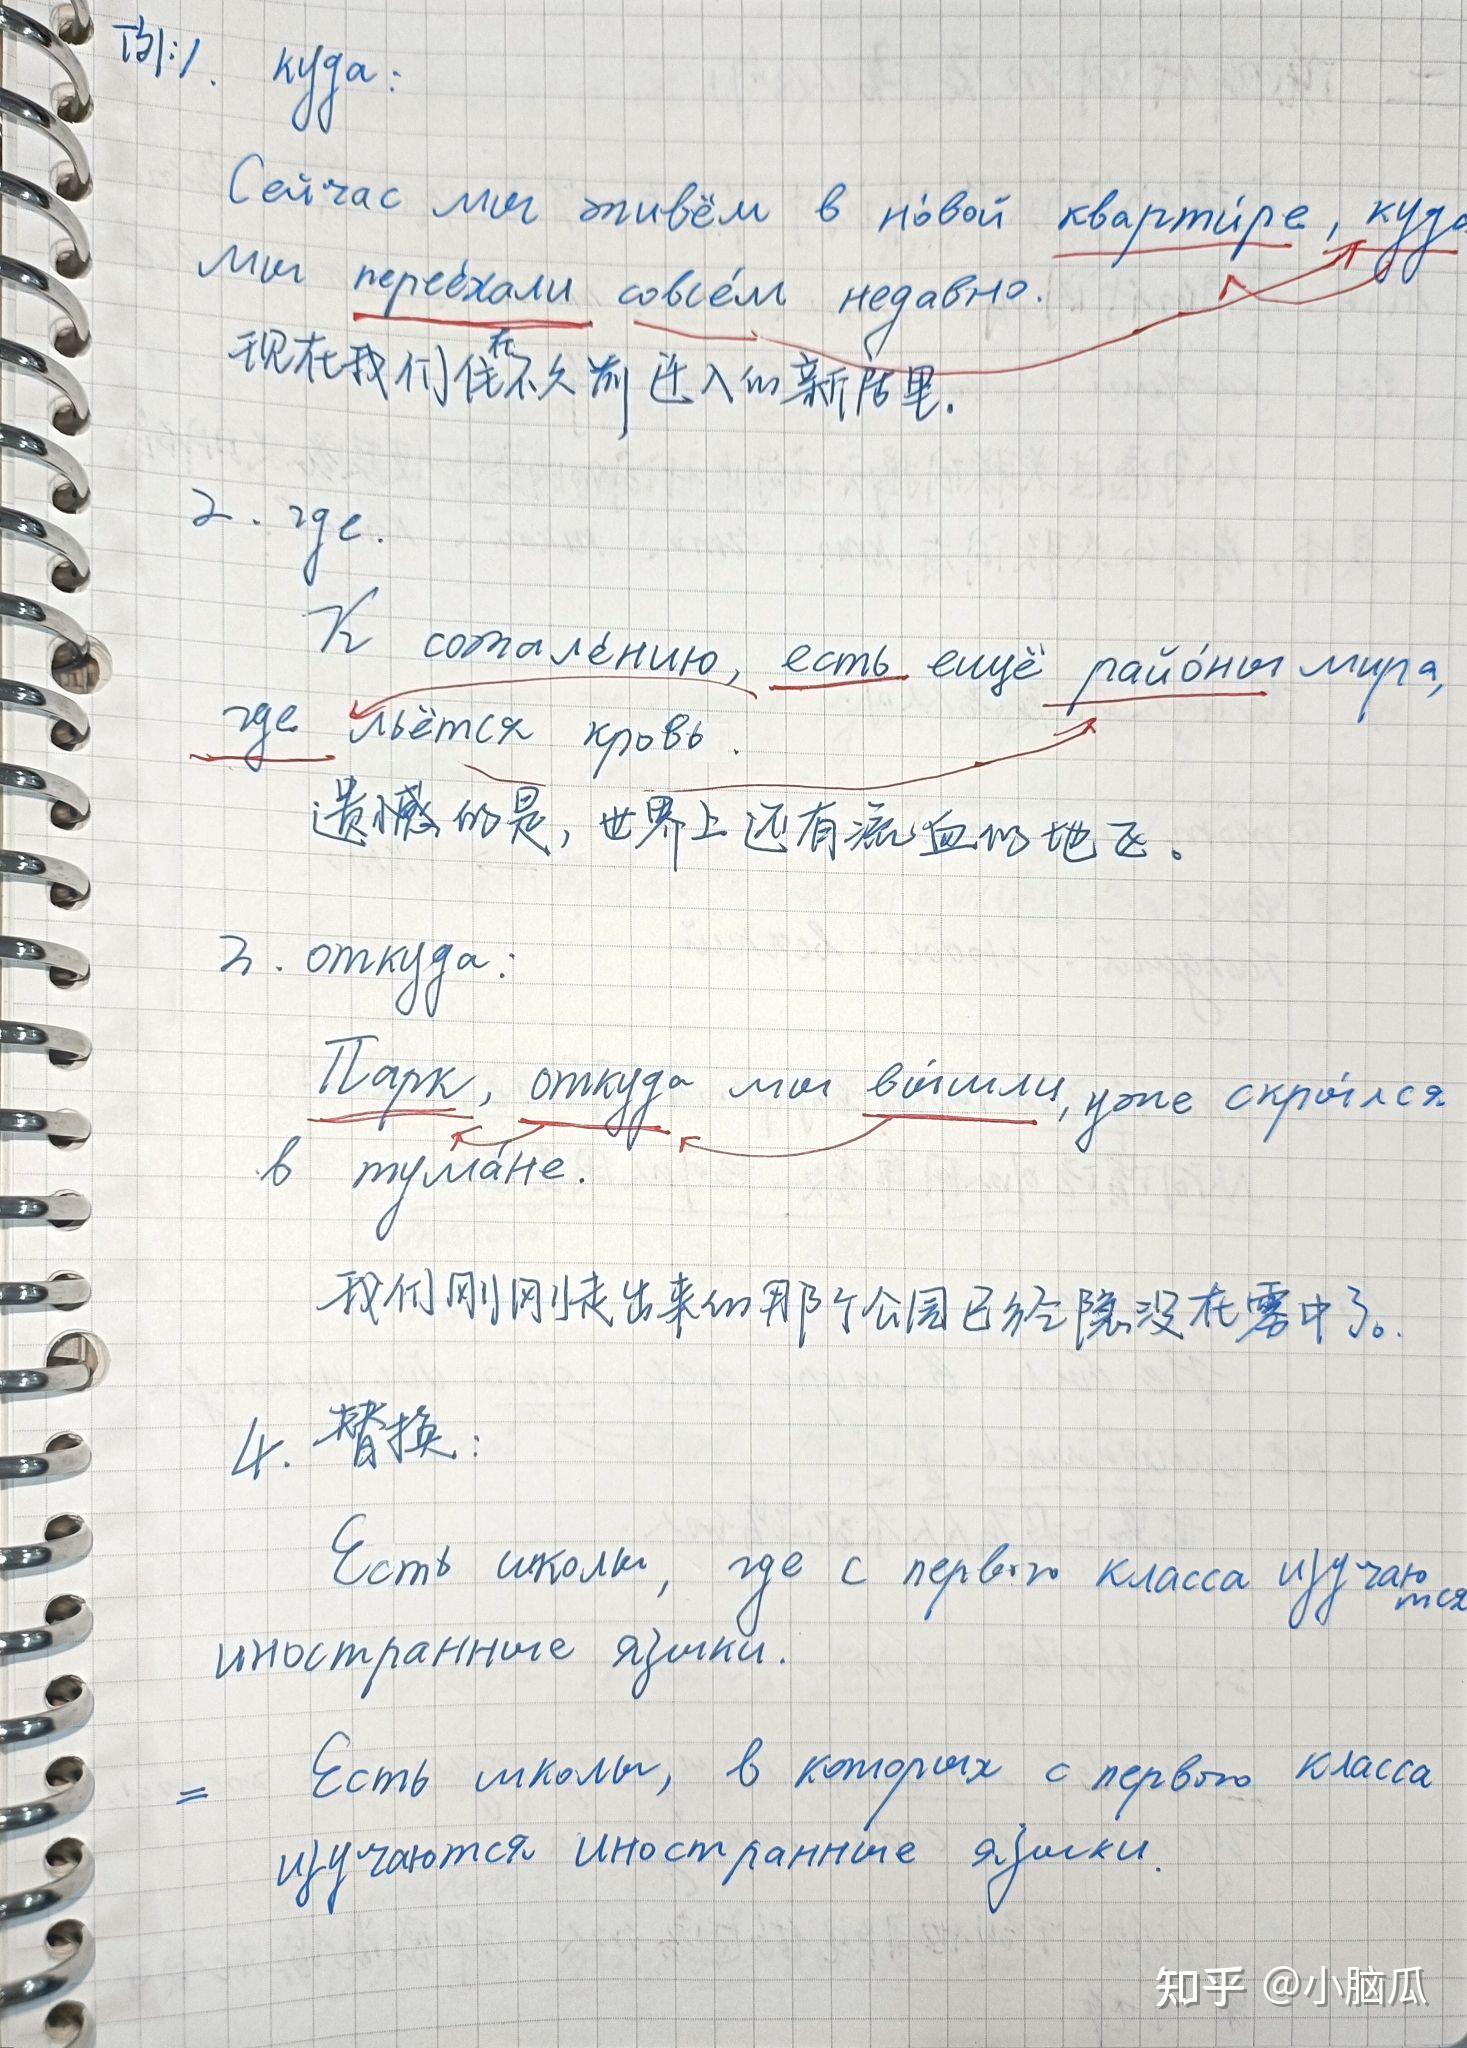 例:1. куда:
Сейчас мы живём в но́вой кварти́ре, куда
мы перее́хали совсе́м недавно.
现在我们住在不久前迁入的新居里.
2. где.
К сожале́нию, есть ещё райо́ны мира,
где льётся кровь.
遗憾的是, 世界上还有流血的地区。
3. откуда:
Парк, откуда мы вы́шли, уже скры́лся
в тума́не.
我们刚刚走出来的那个公园已经隐没在雾中了。
4. 替换:
Есть школы, где с первого класса изучаются
иностранные языки.
= Есть школы, в которых с первого класса
изучаются иностранные языки.
知乎 @小脑瓜